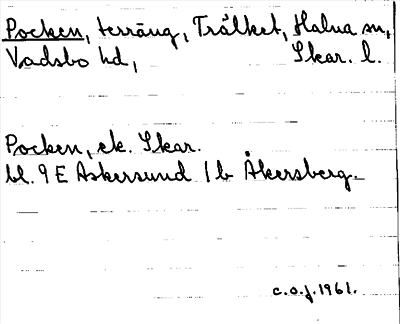 Pocken, terräng, Trålket, Halna sn,
Vadsbo hd, Skar. l.
Pocken, ek. Skar.
bl. 9 E Askersund 1 b Åkersberg.
c.o.j. 1961.